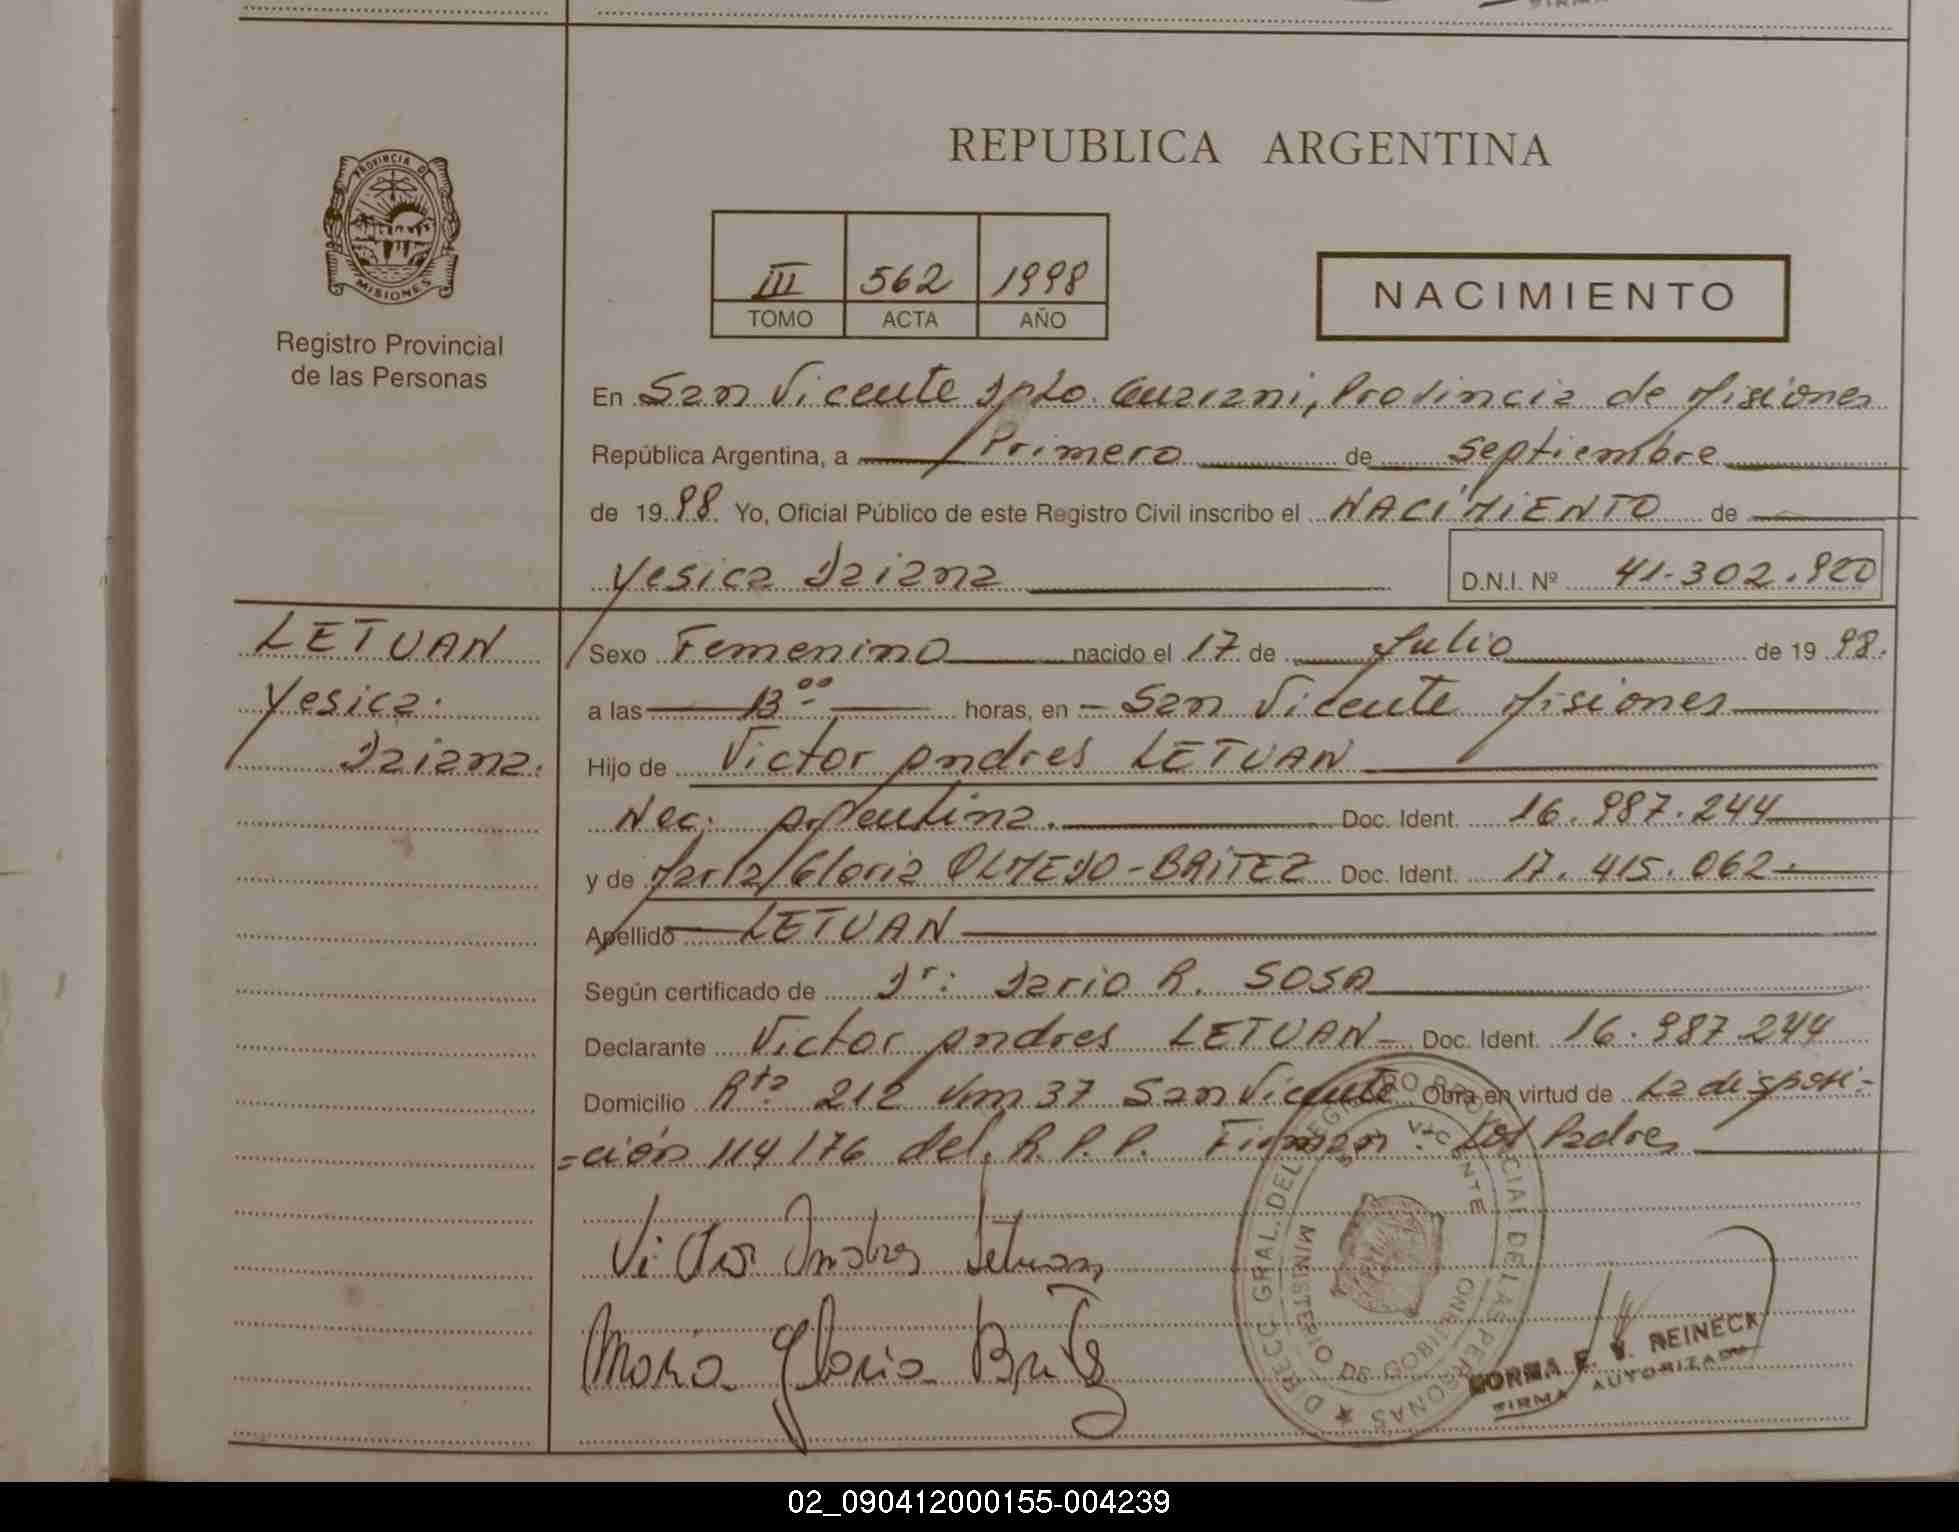 REPUBLICA ARGENTINA
PROVINCIA DE MISIONES
Registro Provincial
de las Personas
III 562 1998
TOMO ACTA AÑO
NACIMIENTO
En San Vicente Dpto. Guarani, Provincia de Misiones
República Argentina, a Primero de septiembre
de 1998. Yo, Oficial Público de este Registro Civil inscribo el NACIMIENTO de
Yesica Daiana D.N.I. Nº 41.302.920
LETUAN
Yesica.
Daiana.
Sexo Femenino nacido el 17 de Julio de 1998.
a las 13⁰⁰ horas, en San Vicente Misiones
Hijo de Victor Andres LETUAN
Nac. Argentina. Doc. Ident. 16.987.244
y de Maria Gloria OLMEDO-BRITEZ Doc. Ident. 17.415.062.
Apellido LETUAN
Según certificado de Dr: Dario R. SOSA
Declarante Victor Andres LETUAN- Doc. Ident. 16.987.244
Domicilio Rta 212 Km 37 San Vicente Obra en virtud de La disposi-
=ción 114/76 del. R.P.P. Firman: Los Padres
Victor Andres Letuan
Maria Gloria Britez
DIRECC. GRAL. DEL REGISTRO PROVINCIAL DE LAS PERSONAS
SAN VICENTE
MINISTERIO DE GOBIERNO
NORMA E. V. REINECK
FIRMA AUTORIZADA
02_090412000155-004239